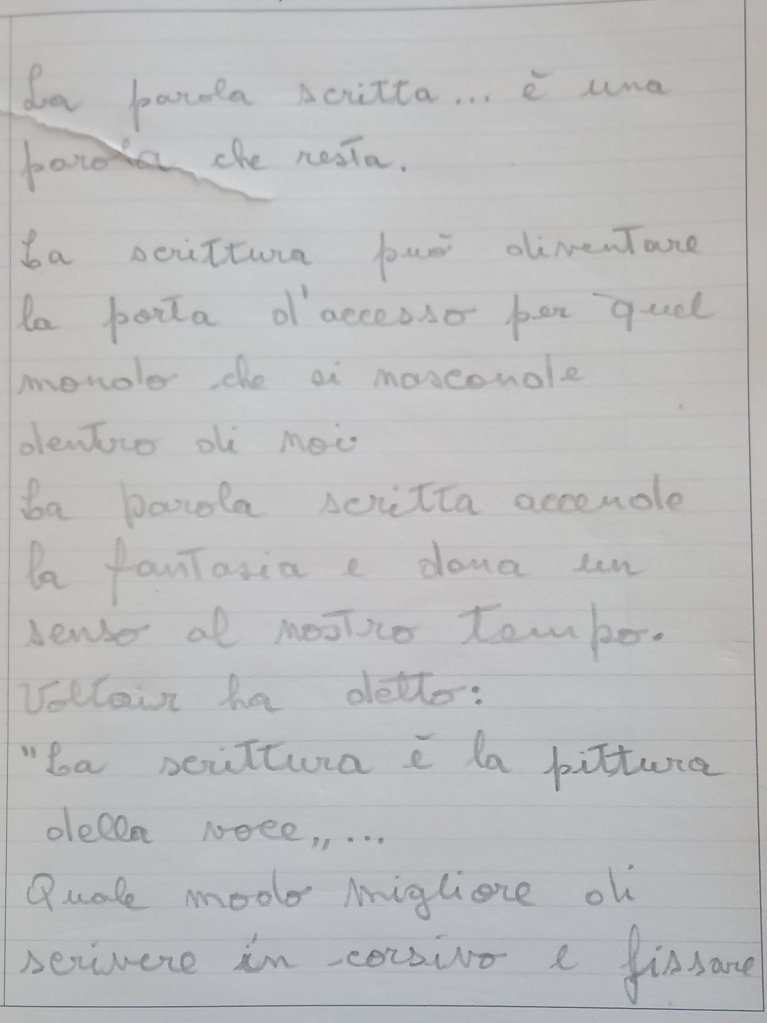 La parola scritta... è una
parola che resta.
La scrittura può diventare
la porta d'accesso per quel
mondo che si nasconde
dentro di noi.
La parola scritta accende
la fantasia e dona un
senso al nostro tempo.
Voltair ha detto:
"La scrittura è la pittura
della voce„...
Quale modo migliore di
scrivere in corsivo e fissare